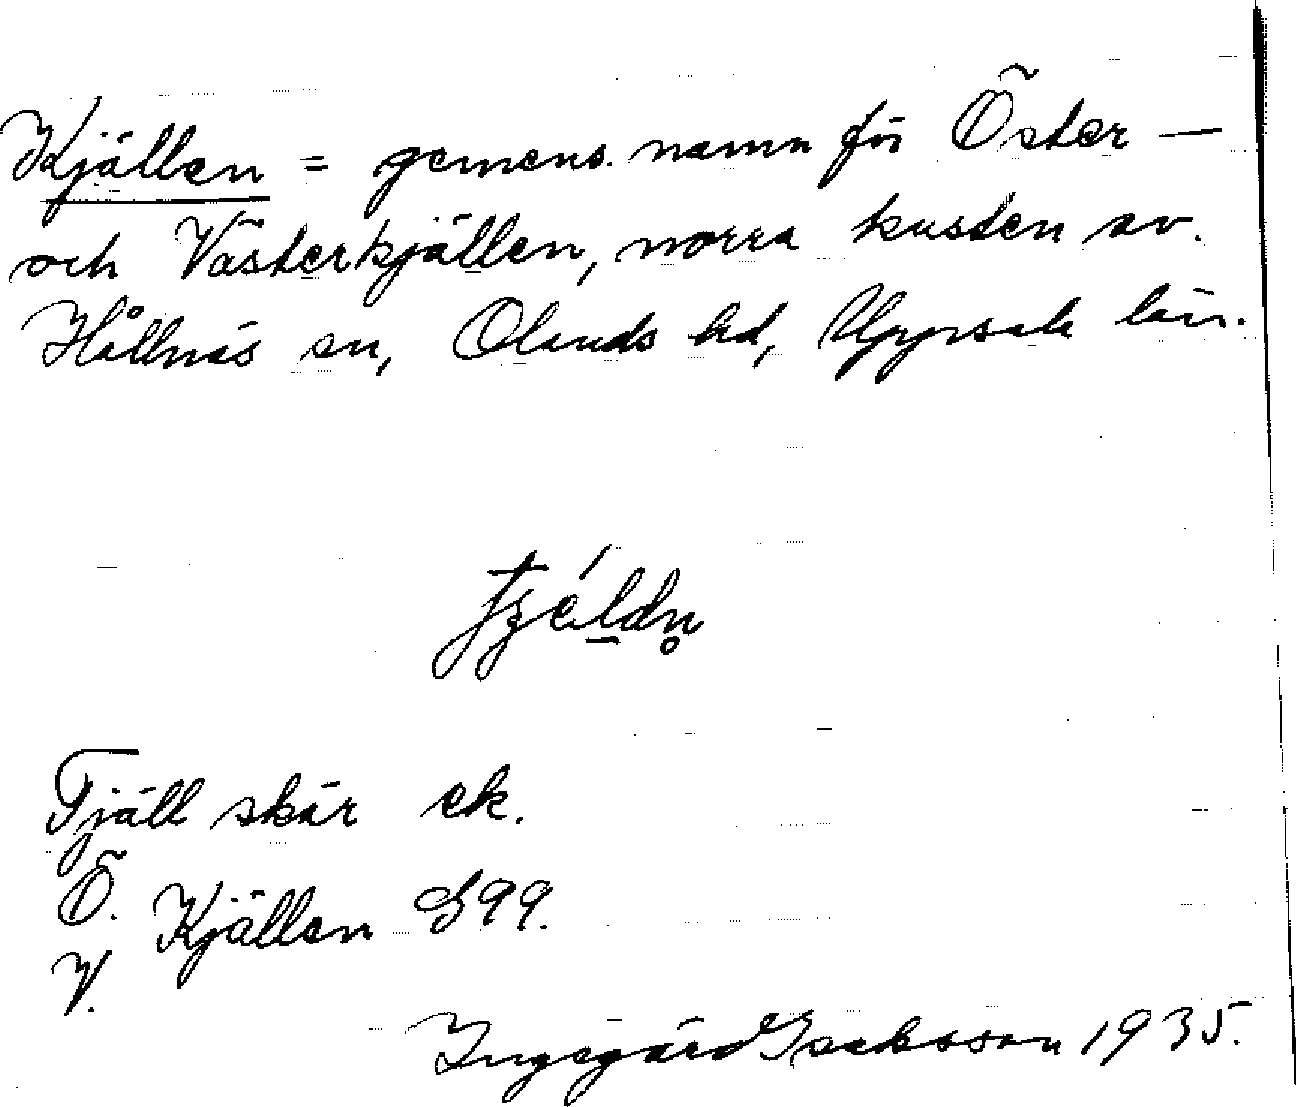 Kjällen = gemens. namn för Öster —
och Västerkjällen, norra kusten av.
Hållnäs sn, Olands hd, Uppsala län.
Tjäll skär ek.
Ö.
Kjällen S99.
V.
Ingegärd Isaksson 1935.